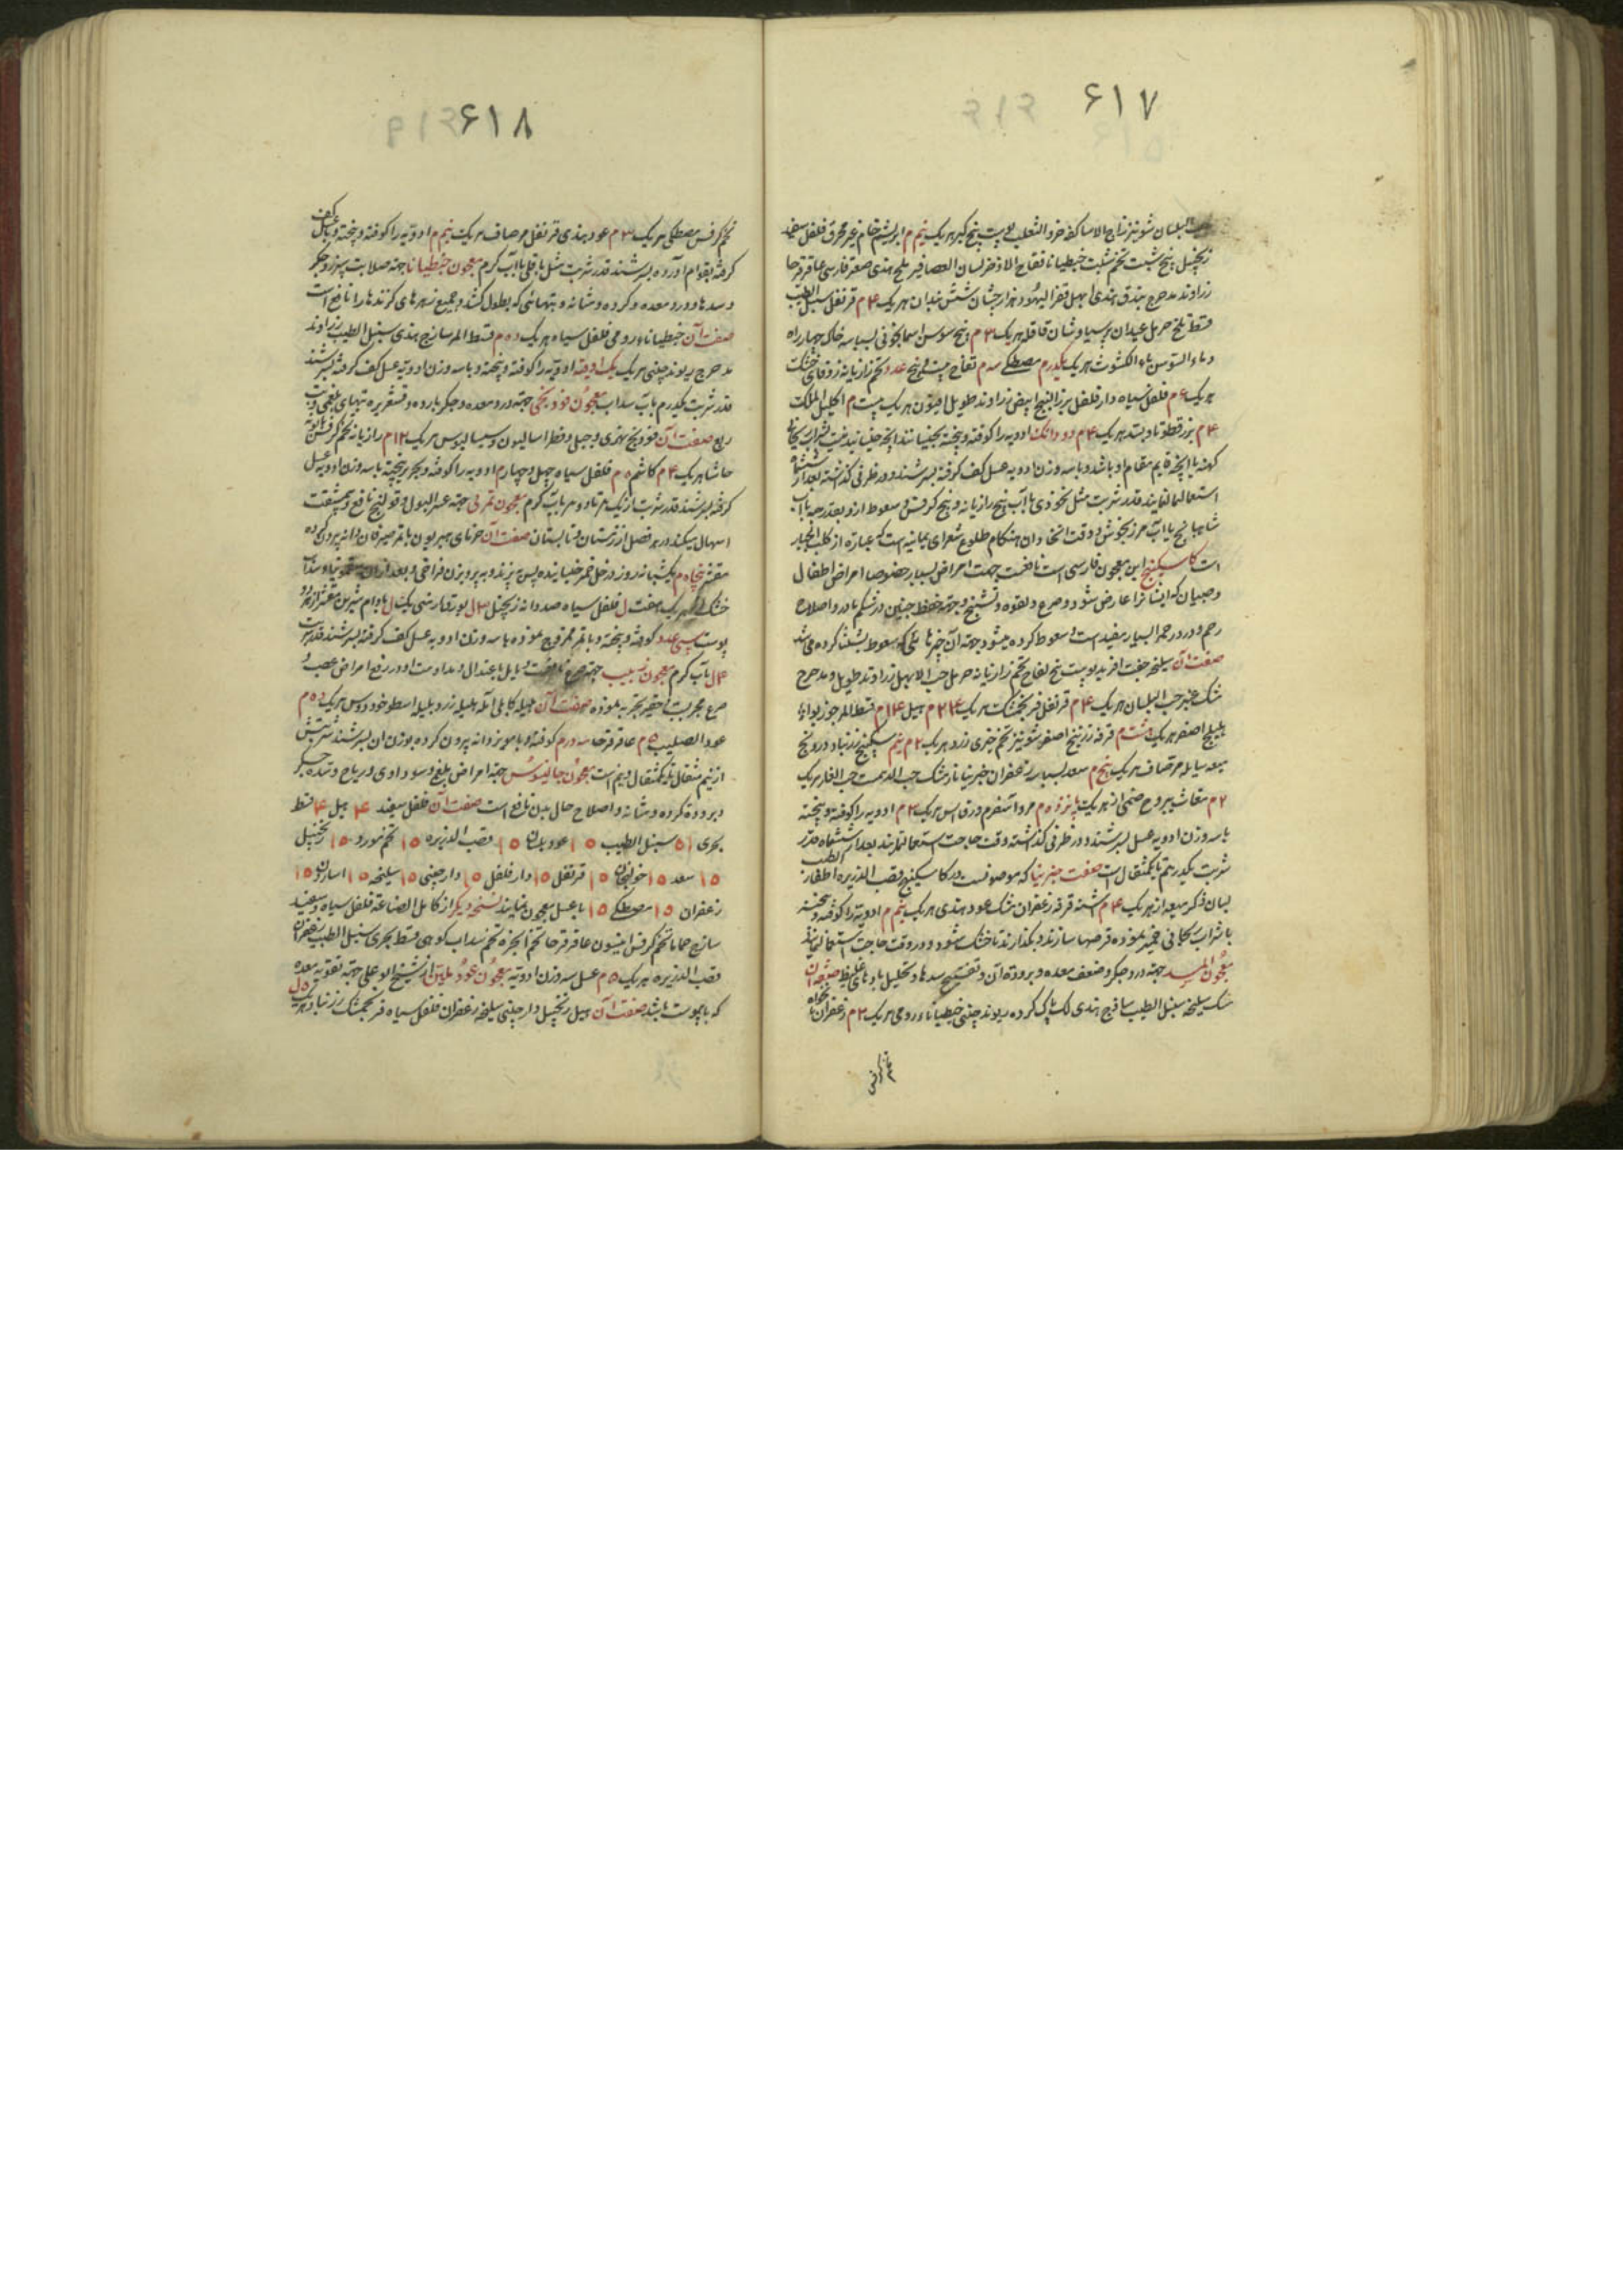 ۶۱۷
البلسان شونیز زاج الاساکفه خزو الثعلب پوست بیخ کبر هر یک نیم م ابریشم خام غیر محرق فلفل سفید
زنجبیل بیخ شبت تخم شبت جنطیانا فقاح الاذخر لسان العصافیر ملح هندی صعتر فارسی عاقرقرحا
زراوند مدحرج بندق هندی ابهل قفر الیهود هزارجشان شش بندان هر یک ۴ م قرنفل سنبل الطیب
قسط تلخ حرمل عیدان پرسیاوشان قاقله هر یک ۳ م بیخ سوسن اسمانجونی بسباسه خاک چهار راه
و ماء السوسن ماء الکشوث هر یک یکدرم مصطکی سه م تفاح بیست و پنج عدد تخم رازیانه زوفای خشک
هر یک ۶ م فلفل سیاه دارفلفل بزر البنج ابیض زراوند طویل افیون هر یک بیست م اکلیل الملک
۴ م بزر قطونا و بسد هر یک ۴ م دو دانگ ادویه را کوفته و بیخته
کهنه یا انچه قایم مقام او باشد و با سه وزن ادویه عسل کف کرفته بسرشند و در ظرفی کذاشته بعد از ششماه
استعمال نمایند قدر شربت مثل نخودی با آب بیخ رازیانه و بیخ کرفس و سعوط ازو بقدر حبه با آب
شاهبانج یا آب مرزنجوش و وقت اتخاذ ان هنکام طلوع شعرای یمانیه است که عباره از کلب الجبار
است کاسکبینج این معجون فارسی است نافعست جهت امراض بسیار خصوصا امراض اطفال
و صبیان که ایشانرا عارض شود و صرع و لقوه و تشنج و جهة حفظ جنین در شکم مادر و اصلاح
رحم و درد رحم البسیار مفید است و سعوط کرده میشود جهة آن چیزهائی که سعوط بشلثا کرده میشد
صفت آن سلیخه جفت افرید پوست بیخ لفاح تخم رازیانه حرمل حب الابهل زراوند طویل و مدحرج
مشک عنبر حب البلسان هر یک ۴ م قرنفل فرنجمشک هر یک ۲۴ م هیل ۱۴ م قسط المر جوز بواء
هلیلج اصفر هر یک هشت م قرفه زرنیخ اصفر شونیز تخم خیری زرد هر یک ۲ م نیم سکبینج زرنباد درونج
میعه سایله مر صاف هر یک پنج م سعد بسباسه زعفران جبریانا زرشک حب الدهمست حب الغار هر یک
۲ م مغاث یبروح صنمی از هر یک پانزده م مرو اسفرم ورق اس هر یک ۲ م ادویه را کوفته و بیخته
با سه وزن ادویه عسل بسرشند و در ظرفی کذاشته وقت حاجت استعمال نمایند بعد از ششماه قدر
شربت یکدرهم تا یکمثقال است صفت جبریانا که موصوفست در کاسکبینج قصب الذریره اظفار الطیب
لسان ذکر میعه از هر یک ۴ م اشنه قرفه زعفران مشک عود هندی هر یک نیم م ادویه را کوفته و بیخته
با شراب ریحانی خمیر نموده قرصها سازند و بکذارند تا خشک شود و در وقت حاجت استعمال نمایند
معجون المسد جهة درد جکر و ضعف معده و برودة آن و تفتیح سدها و تحلیل بادهای غلیظ صفت آن
مشک سلیخه سنبل الطیب ساذج هندی لک پاک کرده ریوند چینی جنطیاناء رومی هر یک ۲ م زعفران نانخواه
تخم کرفس
۶۱۸
تخم کرفس مصطکی هر یک ۳ م عود هندی قرنفل مر صاف هر یک نیم م ادویه را کوفته و بیخته و با عسل کف
کرفته بقوام آورده بسرشند قدر شربت مثل باقلی با آب کرم معجون جنطیانا جهة صلابت سپرز و جکر
و سدها و درد معده و کرده و مثانه و تبهائی که بطول کشد و جمیع زهرهای کزندها را نافع است
صفت آن جنطیاناء رومی فلفل سیاه هر یک ده م قسط المر ساذج هندی سنبل الطیب زراوند
مدحرج ریوند چینی هر یک یک اوقیه ادویه را کوفته و بیخته و با سه وزن ادویه عسل کف کرفته بسرشند
قدر شربت یکدرم با آب سداب معجون فودنجی جهة درد معده و جکر بارده و قشعریره تبهای بلغمی و تب
ربع صفت آن فودنج نهری و جبلی و فطراسالیون و سیسالیوس هر یک ۱۲ م رازیانه تخم کرفس
حاشا هر یک ۴ م کاشم ۵ م فلفل سیاه چهل و چهار م ادویه را کوفته و بحریر بیخته با سه وزن ادویه عسل
کرفته بسرشند قدر شربت از یک درم تا دو درم با آب کرم معجون تمری جهة عسر البول و قولنج نافع و بیمشقت
اسهال میکند در هر فصل از زمستان و تابستان صفت آن خرمای هیرون یا تمر صیرفان دانه بیرون کرده
مقشر پنجاه م یکشبانه روز در خل خمر خیسانیده پس بپزند و به پرویزن فراخی و بعد از ان سقمونیا و سداب
خشک هر یک هفت ل فلفل سیاه صد دانه زنجبیل ۳ ل بورق ارمنی یک ل بادام شیرین مقشر از هر دو
پوست سی عدد کوفته و بیخته و با تمر ممزوج نموده با سه وزن ادویه عسل کف کرفته بسرشند قدر شربت
۴ ل با آب کرم معجون زبیب جهة صرع نافعست و مایل باعتدال و مداومت او در رفع امراض عصب و
صرع مجربست و حقیر تجربه نموده صفت آن هلیله کابلی آمله هلیله زرد بلیله اسطوخودوس هر یک ۱۵ م
عود الصلیب ۵ م عاقرقرحا سه درم کوفته و با مویز دانه بیرون کرده بوزن ان بسرشند شربتش
از نیم مثقال تا یکمثقال و نیم است معجون جالینوس جهة امراض بلغم و سوداوی و ریاح و سده جکر
و برودة کرده و مثانه و اصلاح حال بدن نافع است صفت آن فلفل سفید ۴ هیل ۴ قسط
بحری ۱۵ سنبل الطیب ۱۵ عود بلسان ۱۵ قصب الذریره ۱۵ تخم مورد ۱۵ زنجبیل
۱۵ سعد ۱۵ خولنجان ۱۵ قرنفل ۱۵ دارفلفل ۱۵ دارچینی ۱۵ سلیخه ۱۵ اسارون ۱۵
زعفران ۱۵ مصطکی ۱۵ با عسل معجون نمایند نسخه دیکر از کامل الصناعة فلفل سیاه و سفید
ساذج حماما تخم کرفس انیسون عاقرقرحا تخم انجره تخم سداب کوهی قسط بحری سنبل الطیب زعفران
قصب الذریره هر یک ۵ م عسل سه وزن ادویه معجون عود ملین از شیخ ابو علی جهة تقویة معده
که با یبوست باشد صفت آن هیل زنجبیل دارچینی سلیخه زعفران فلفل سیاه فرنجمشک زرنباد هر یک ۵ ل